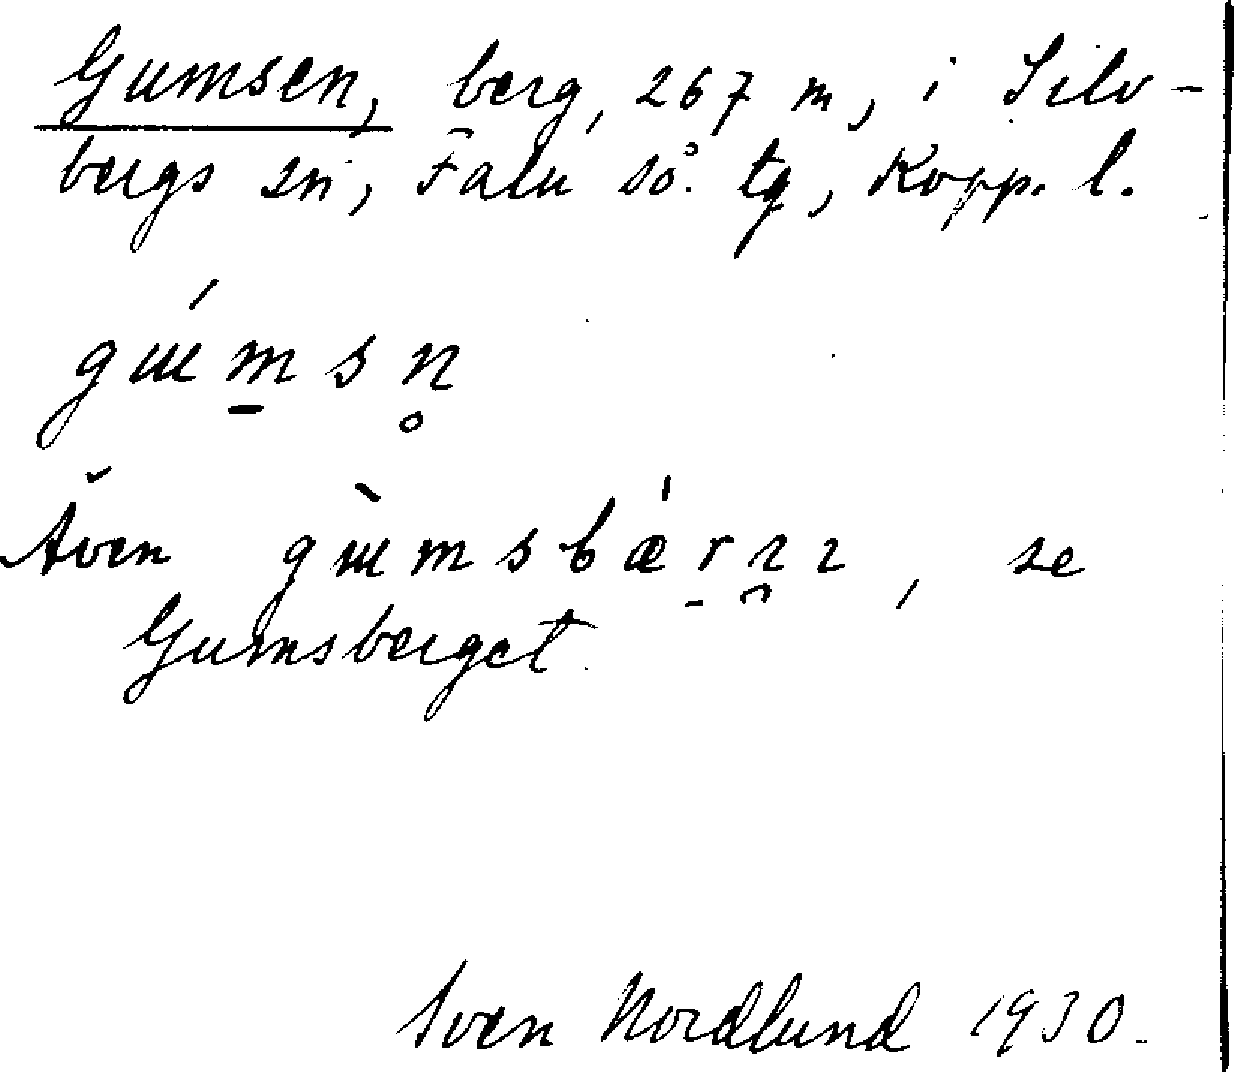 Gumsen, berg, 267 m, i Silv-
bergs sn, Falu sö. tg, Kopp. l.
Även se
Gumsberget
Sven Nordlund 1930.